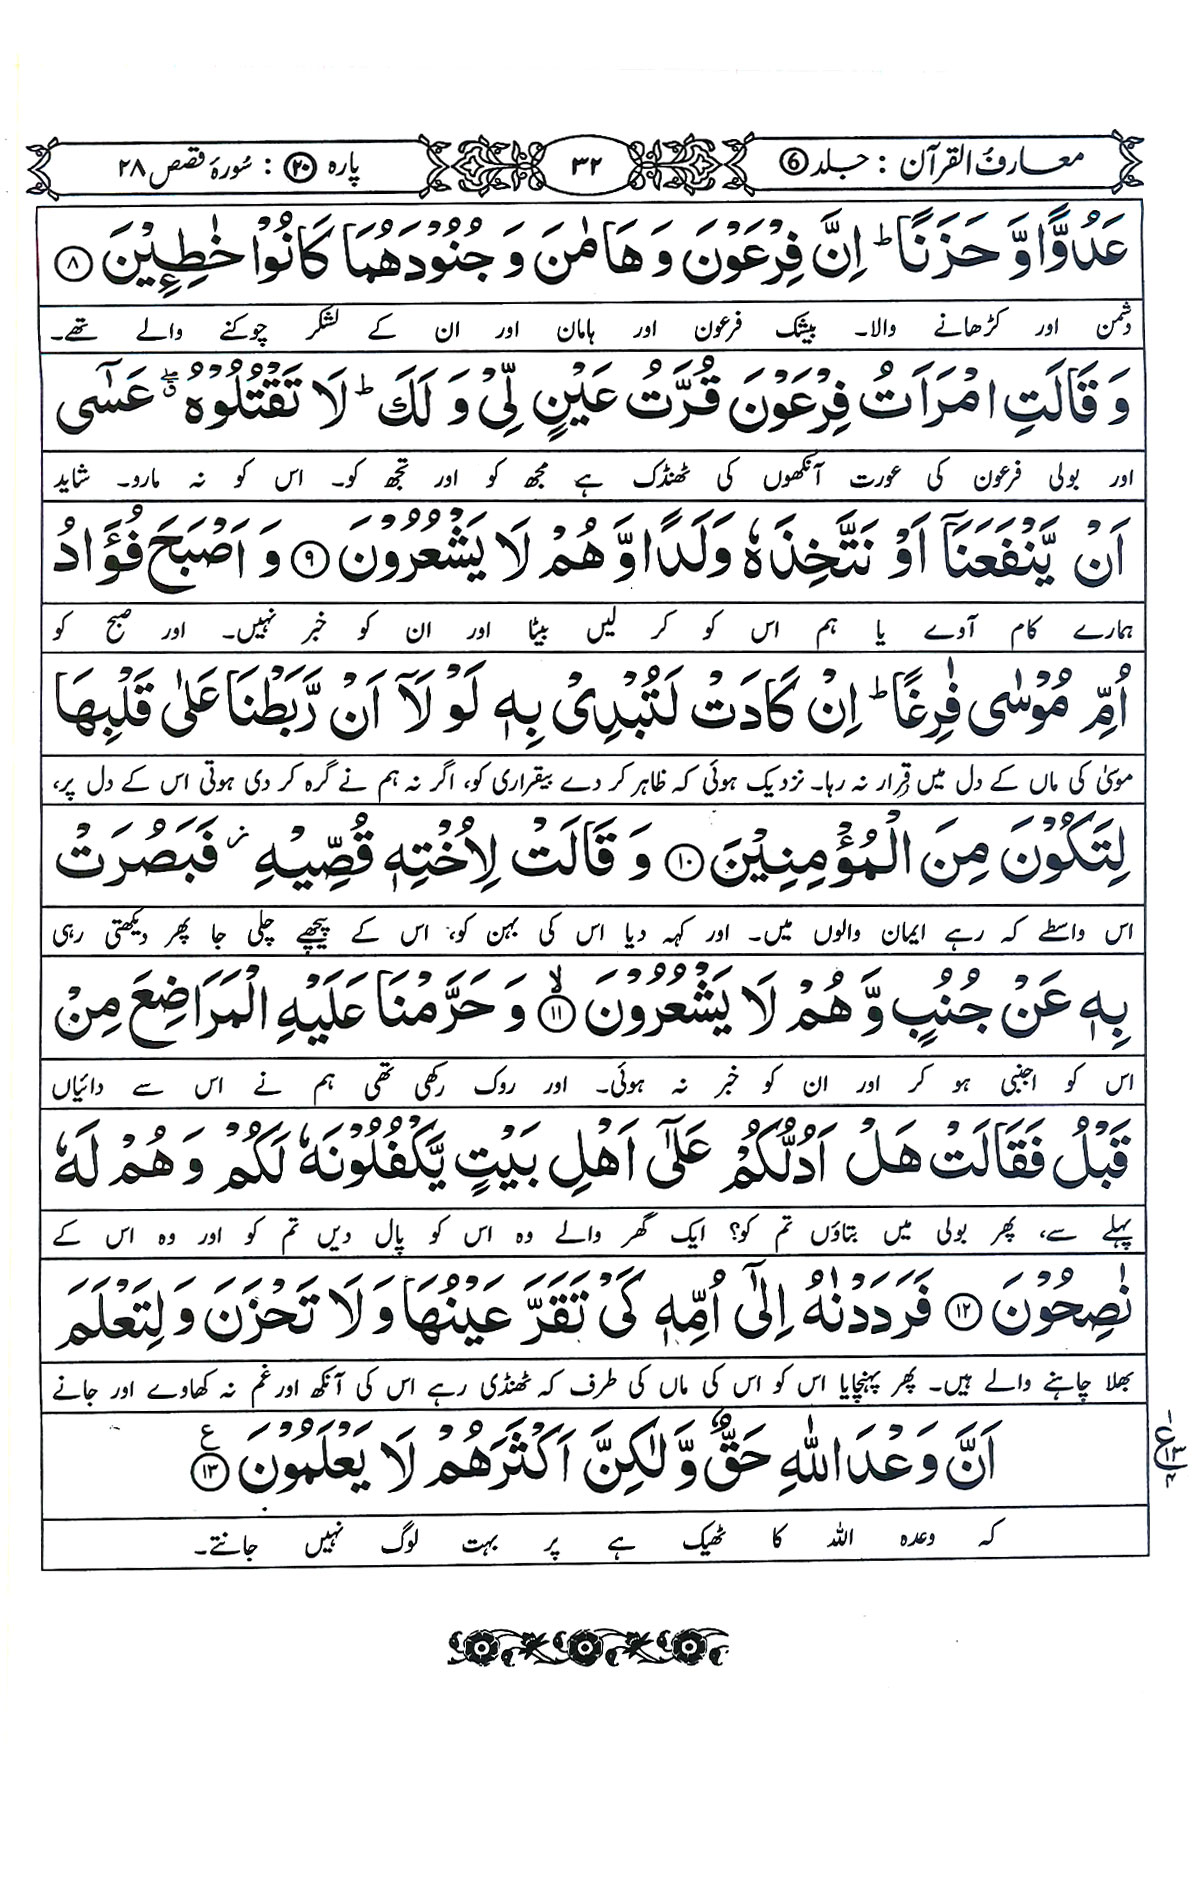 معارف القرآن : جلد ⑥ ۳۲ پارہ ۲۰ : سُورۂ قصص ۲۸
عَدُوًّا وَّ حَزَنًا ؕ اِنَّ فِرْعَوْنَ وَ هَامٰنَ وَ جُنُوْدَهُمَا كَانُوْا خٰطِـِٕيْنَ ۸
دشمن اور کڑھانے والا۔ بیشک فرعون اور ہامان اور ان کے لشکر چوکنے والے تھے۔
وَ قَالَتِ امْرَاَتُ فِرْعَوْنَ قُرَّتُ عَيْنٍ لِّیْ وَ لَكَ ؕ لَا تَقْتُلُوْهُ ۖۗ عَسٰۤى
اور بولی فرعون کی عورت آنکھوں کی ٹھنڈک ہے مجھ کو اور تجھ کو۔ اس کو نہ مارو۔ شاید
اَنْ يَّنْفَعَنَاۤ اَوْ نَتَّخِذَهٗ وَلَدًا وَّ هُمْ لَا يَشْعُرُوْنَ ۹ وَ اَصْبَحَ فُؤَادُ
ہمارے کام آوے یا ہم اس کو کر لیں بیٹا اور ان کو خبر نہیں۔ اور صبح کو
اُمِّ مُوْسٰى فٰرِغًا ؕ اِنْ كَادَتْ لَتُبْدِیْ بِهٖ لَوْ لَاۤ اَنْ رَّبَطْنَا عَلٰى قَلْبِهَا
موسیٰ کی ماں کے دل میں قرار نہ رہا۔ نزدیک ہوئی کہ ظاہر کر دے بیقراری کو، اگر نہ ہم نے گرہ کر دی ہوتی اس کے دل پر،
لِتَكُوْنَ مِنَ الْمُؤْمِنِيْنَ ۱۰ وَ قَالَتْ لِاُخْتِهٖ قُصِّيْهِ ؗ فَبَصُرَتْ
اس واسطے کہ رہے ایمان والوں میں۔ اور کہہ دیا اس کی بہن کو، اس کے پیچھے چلی جا پھر دیکھتی رہی
بِهٖ عَنْ جُنُبٍ وَّ هُمْ لَا يَشْعُرُوْنَ ۙ۱۱ وَ حَرَّمْنَا عَلَيْهِ الْمَرَاضِعَ مِنْ
اس کو اجنبی ہو کر اور ان کو خبر نہ ہوئی۔ اور روک رکھی تھی ہم نے اس سے دائیاں
قَبْلُ فَقَالَتْ هَلْ اَدُلُّكُمْ عَلٰۤى اَهْلِ بَيْتٍ يَّكْفُلُوْنَهٗ لَكُمْ وَ هُمْ لَهٗ
پہلے سے، پھر بولی میں بتاؤں تم کو؟ ایک گھر والے وہ اس کو پال دیں تم کو اور وہ اس کے
نٰصِحُوْنَ ۱۲ فَرَدَدْنٰهُ اِلٰۤى اُمِّهٖ كَیْ تَقَرَّ عَيْنُهَا وَ لَا تَحْزَنَ وَ لِتَعْلَمَ
بھلا چاہنے والے ہیں۔ پھر پہنچایا اس کو اس کی ماں کی طرف کہ ٹھنڈی رہے اس کی آنکھ اور غم نہ کھاوے اور جانے
اَنَّ وَعْدَ اللّٰهِ حَقٌّ وَّ لٰكِنَّ اَكْثَرَهُمْ لَا يَعْلَمُوْنَ ۱۳ع
کہ وعدہ اللہ کا ٹھیک ہے پر بہت لوگ نہیں جانتے۔